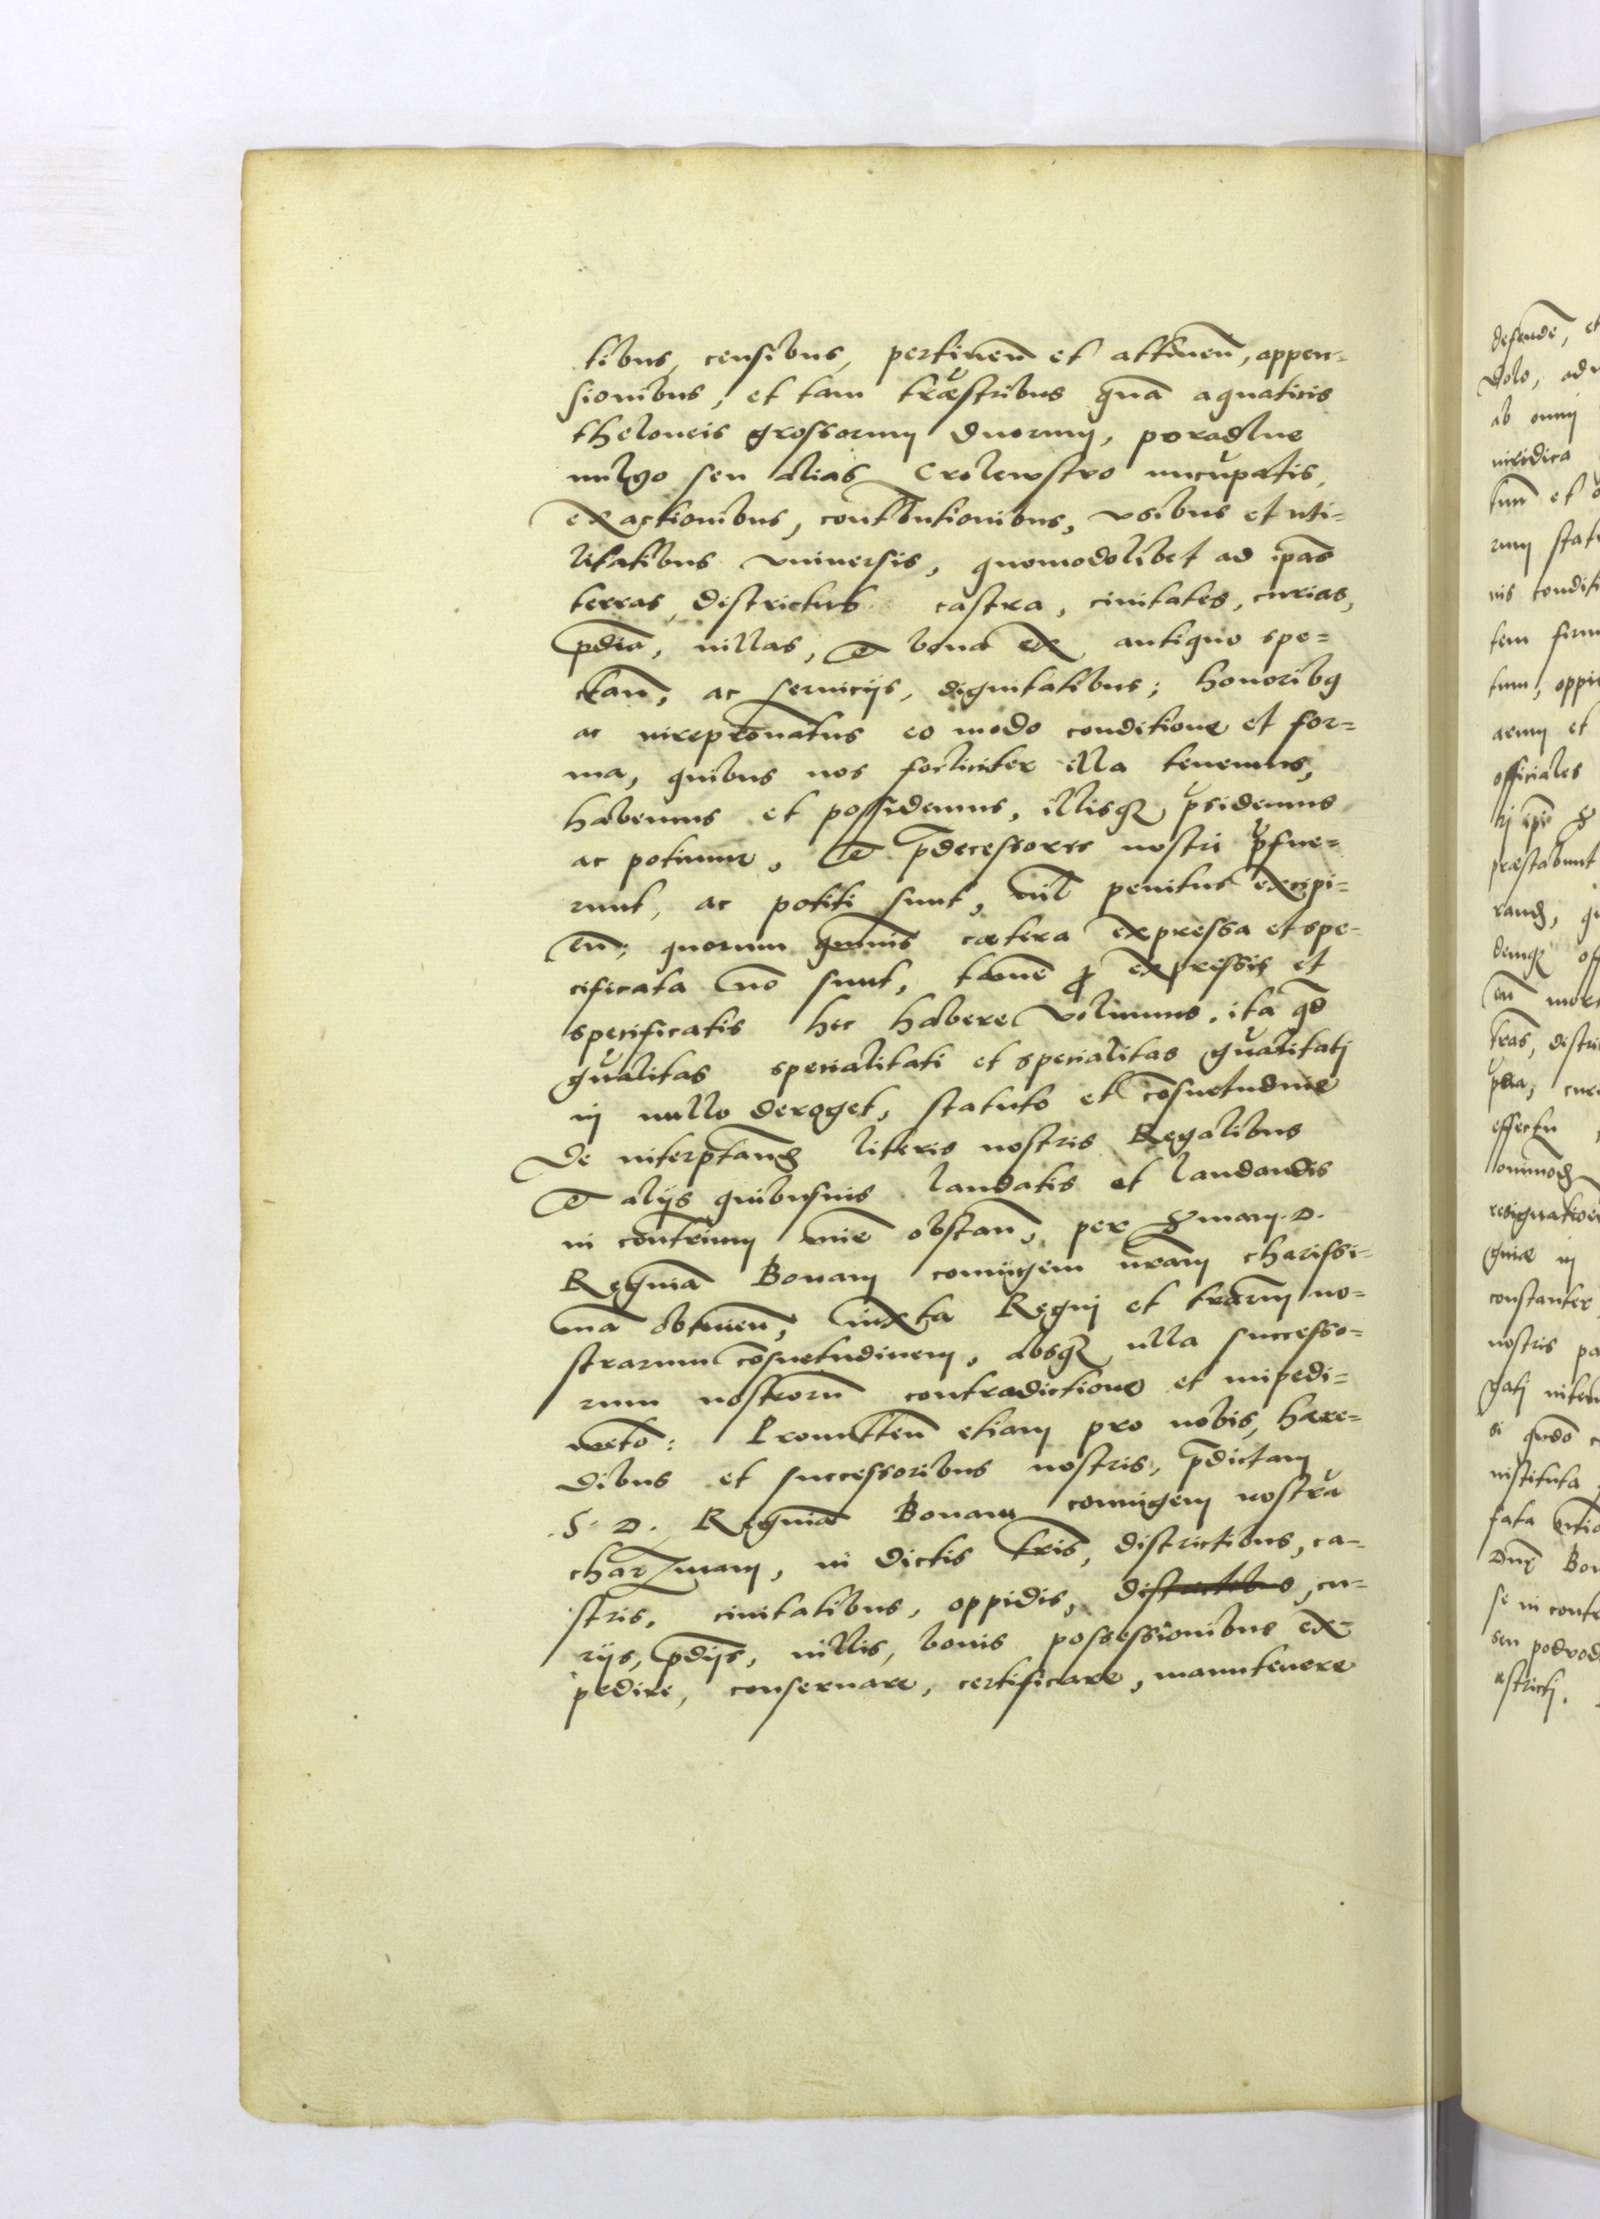 tibus, censibus, pertineñ et attineñ, appen=
sionibus, et tam træstribus quã aquaticis
theloneis grossorum duorum, poradlne
uulgo seu alias Crolewstro nucupatis,
exactionibus, contbutionibus, vsibus et uti=
litatibus vniuersis, quomodolibet ad ipãs
terras, districtus castra, ciuitates, curias,
p̃dia, uillas, et bona ex antiquo spe=
ctañ, ac seruicijs, dignitatibus, honoribq
ac eo modo conditione et for=
ma, quibus nos foeliciter illa tenemus,
habemus et possidemus, illisq psidemus
ac potimur, et p̃decessores nostri pfue=
runt, ac potiti sunt, nil penitus excipi=
eñ; quorum quuis cætera expressa et spe=
cificata nõ sunt, tamẽ p expressis et
specificatis hec habere volumus, ita qd
gualitas specialitati et specialitas gualitati
in nullo deroget, statuto et cõsuetudine
de interp̃tand literis nostris Regalibus
et alijs quibusuis laudatis et laudandis
in contrium mie obstañ, per Smam. D.
Reginã Bonam coniugem nram charissi=
mã obtineñ, iuxta Regni et trarum no=
strarum cõsuetudinem, absq ulla successo=
rum nostrorũ contradictione et impedi=
meto: Promitteñ etiam pro nobis, hære=
dibus et successoribus nostris, p̃dictam
S. D. Reginã Bonam coniugem nostrã
charmam, in dictis tris, districtibus, ca=
stris, ciuitatibus, oppidis, districtibus, cu=
rijs, p̃dijs, uillis, bonis possessionibus ex=
pedire, conseruare, certificare, manutenere
defende, et
dolo, ad
ab omni
uiridica
tum et
rum stat
nis condit
tem firm
tum, oppi
arum et
officiales
præstabunt
rand, q
demq off
en mor
tras, distri
pdia, cur
effectu
omnimod
resignation
gnie in
constanter
nostris pa
gati
si qudo
instituta
fata
Dne Bon
se in cont
seu podwod
astricti.